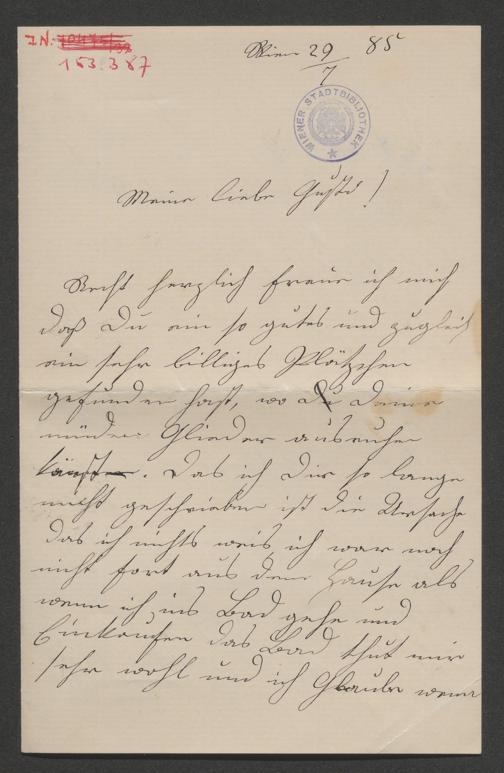 I.N. 70475/33
153.387
Wien 29/7 85
WIENER STADTBIBLIOTHEK
Meine liebe Gusti!
Recht herzlich freue ich mich
daß Du ein so gutes und zugleich
ein sehr billiges Plätzchen
gefunden hast, wo Du Deine
müden Glieder ausruhen
kannst. Das ich Dir so lange
nicht geschrieben ist die Ursache
das ich nichts weis, ich war noch
nicht fort aus dem Hause als
wenn ich ins Bad gehe und
Einkaufen das Bad thut mir
sehr wohl und ich glaube wenn